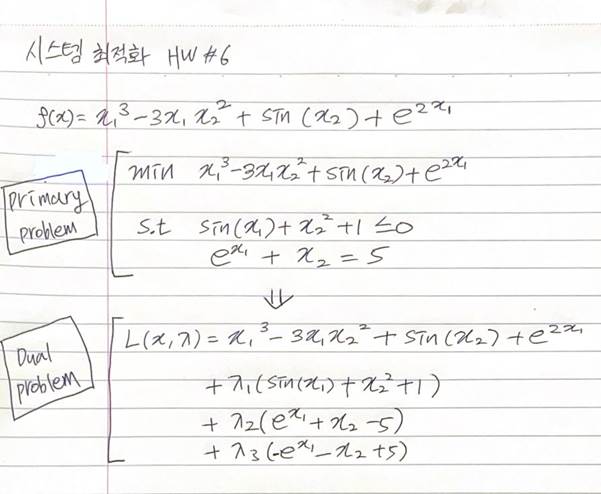 시스템 최적화 HW #6
f(x) = x₁³ - 3x₁x₂² + sin(x₂) + e^{2x₁}
primary problem
min x₁³ - 3x₁x₂² + sin(x₂) + e^{2x₁}
s.t sin(x₁) + x₂² + 1 ≤ 0
e^{x₁} + x₂ = 5
⇓
Dual problem
L(x, λ) = x₁³ - 3x₁x₂² + sin(x₂) + e^{2x₁}
+ λ₁(sin(x₁) + x₂² + 1)
+ λ₂(e^{x₁} + x₂ - 5)
+ λ₃(-e^{x₁} - x₂ + 5)